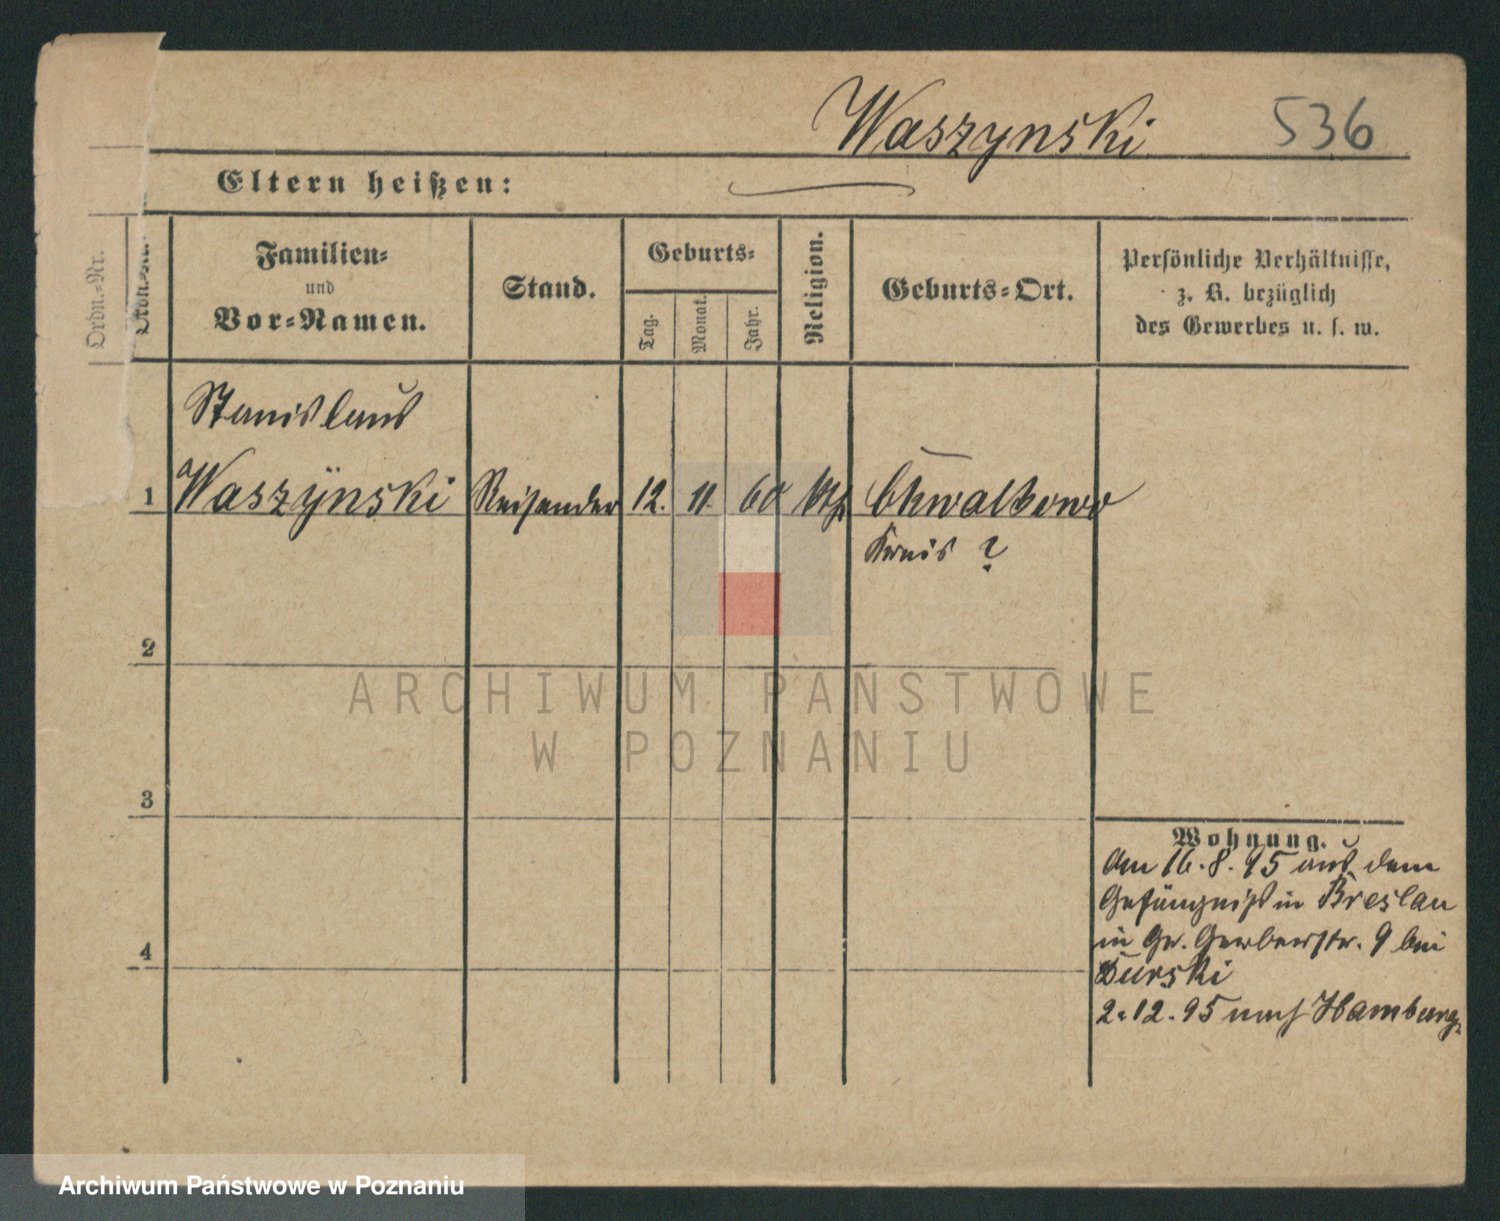 Waszynski 536
Eltern heißen:
Ordn.-Nr.
Ordn.-Nr.
Familien-
und
Vor-Namen.
Stand.
Geburts-
Tag.
Monat.
Jahr.
Religion.
Geburts-Ort.
Persönliche Verhältnisse,
z. B. bezüglich
des Gewerbes u. s. w.
Stanislaus
1 Waszÿnski Reisender 12. 11. 60 kth Chwalkowo
Kreis ?
2
3
4
Wohnung.
Am 16.8.95 aus dem
Gefängniß in Breslau
in Gr. Gerberstr. 9 bei
Durski
2.12.95 nach Hamburg.
ARCHIWUM PAŃSTWOWE
W POZNANIU
Archiwum Państwowe w Poznaniu